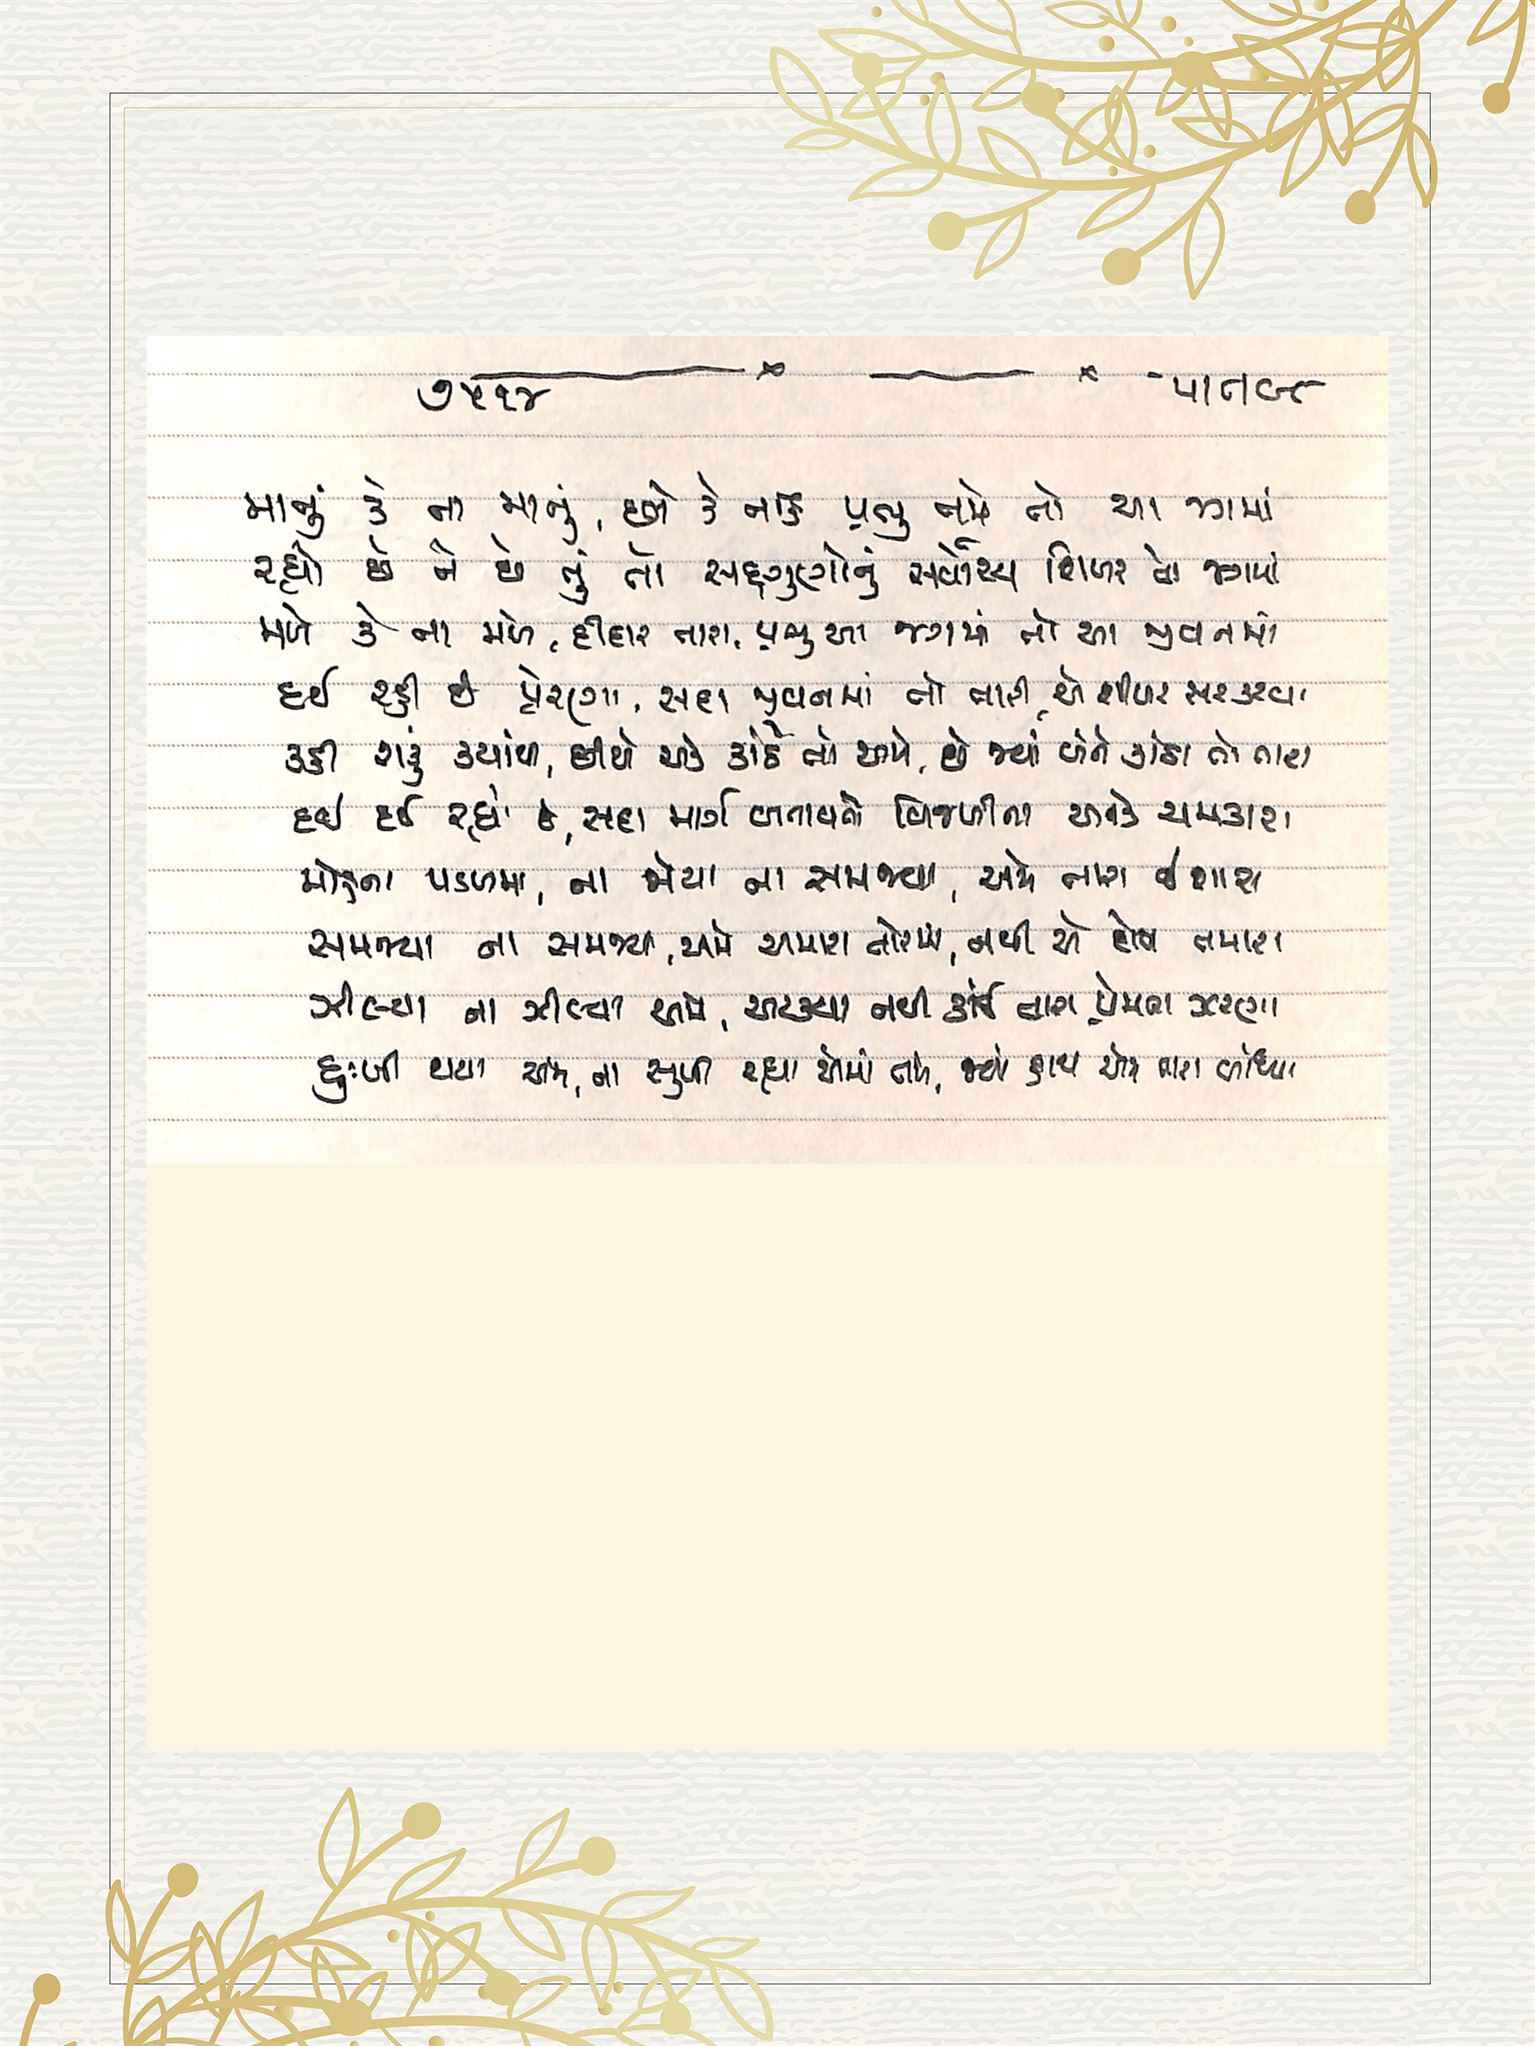 ૭૫૧૪
માનું કે ના માનું, છો કે નહિ પ્રભુ તમે તો આ જગમાં
રહ્યો છે ને છે તું તો સદ્દગુણોનું સર્વોચ્ચ શિખર તો જગમાં
મળે કે ના મળે, દીદાર તારા, પ્રભુ આ જગમાં તો આ જીવનમાં
દઈ રહી છે પ્રેરણા, સદા જીવનમાં તો તારી, એ શીખર સર કરવા
કહી શકું ક્યાંથી, છીએ એક કાંઠે તો અમે, છે જ્યાં બંને કાંઠા તો તારા
દઈ દઈ રહ્યો છે, સદા માર્ગ બતાવતો વિજળીના અનેક ચમકારા
મોહના પડળમાં, ના જોયા ના સમજ્યા, અમે તારા ઈશારા
સમજ્યા ના સમજ્યા, અમે અમારા તોરમાં, નથી એ દોષ તમારા
ઝીલ્યા ના ઝીલ્યા અમે, અટક્યા નથી કાંઈ તારા પ્રેમના ઝરણા
દુઃખી થયા અમે, ના સુખી રહ્યા એમાં તમે, જ્યાં હાથ અમે તારા બાંધ્યા